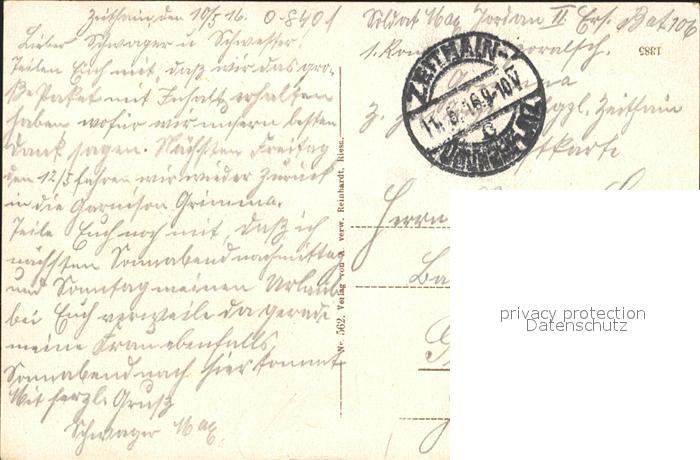 Zeithain, den 10/5 16. 0-8401
Lieber Schwager u. Schwester!
Teilen Euch mit, daß wir das gro-
ße Paket mit Inhalt erhalten
haben wofür wir unsern besten
Dank sagen. Nächsten Freitag
den 12/5 fahren wir wieder zurück
in die Garnison Grimma.
Teile Euch noch mit, daß ich
nächsten Sonnabend nachmittag
und Sonntag meinen Urlaub
bei Euch verweile da gerade
meine Frau ebenfalls
Sonnabend nach hier kommt
Mit herzl. Gruß
Schwager Max.
Nr. 562. Verlag von A. verw. Reinhardt, Riesa.
Soldat Max Jordan II. Ers. Bat 106
1. Korporalsch.
1385
Z. Z. Zeithain
Postkarte
ZEITHAIN
11.5.16.9-10V
c
Herrn
Ba
G
privacy protection
Datenschutz